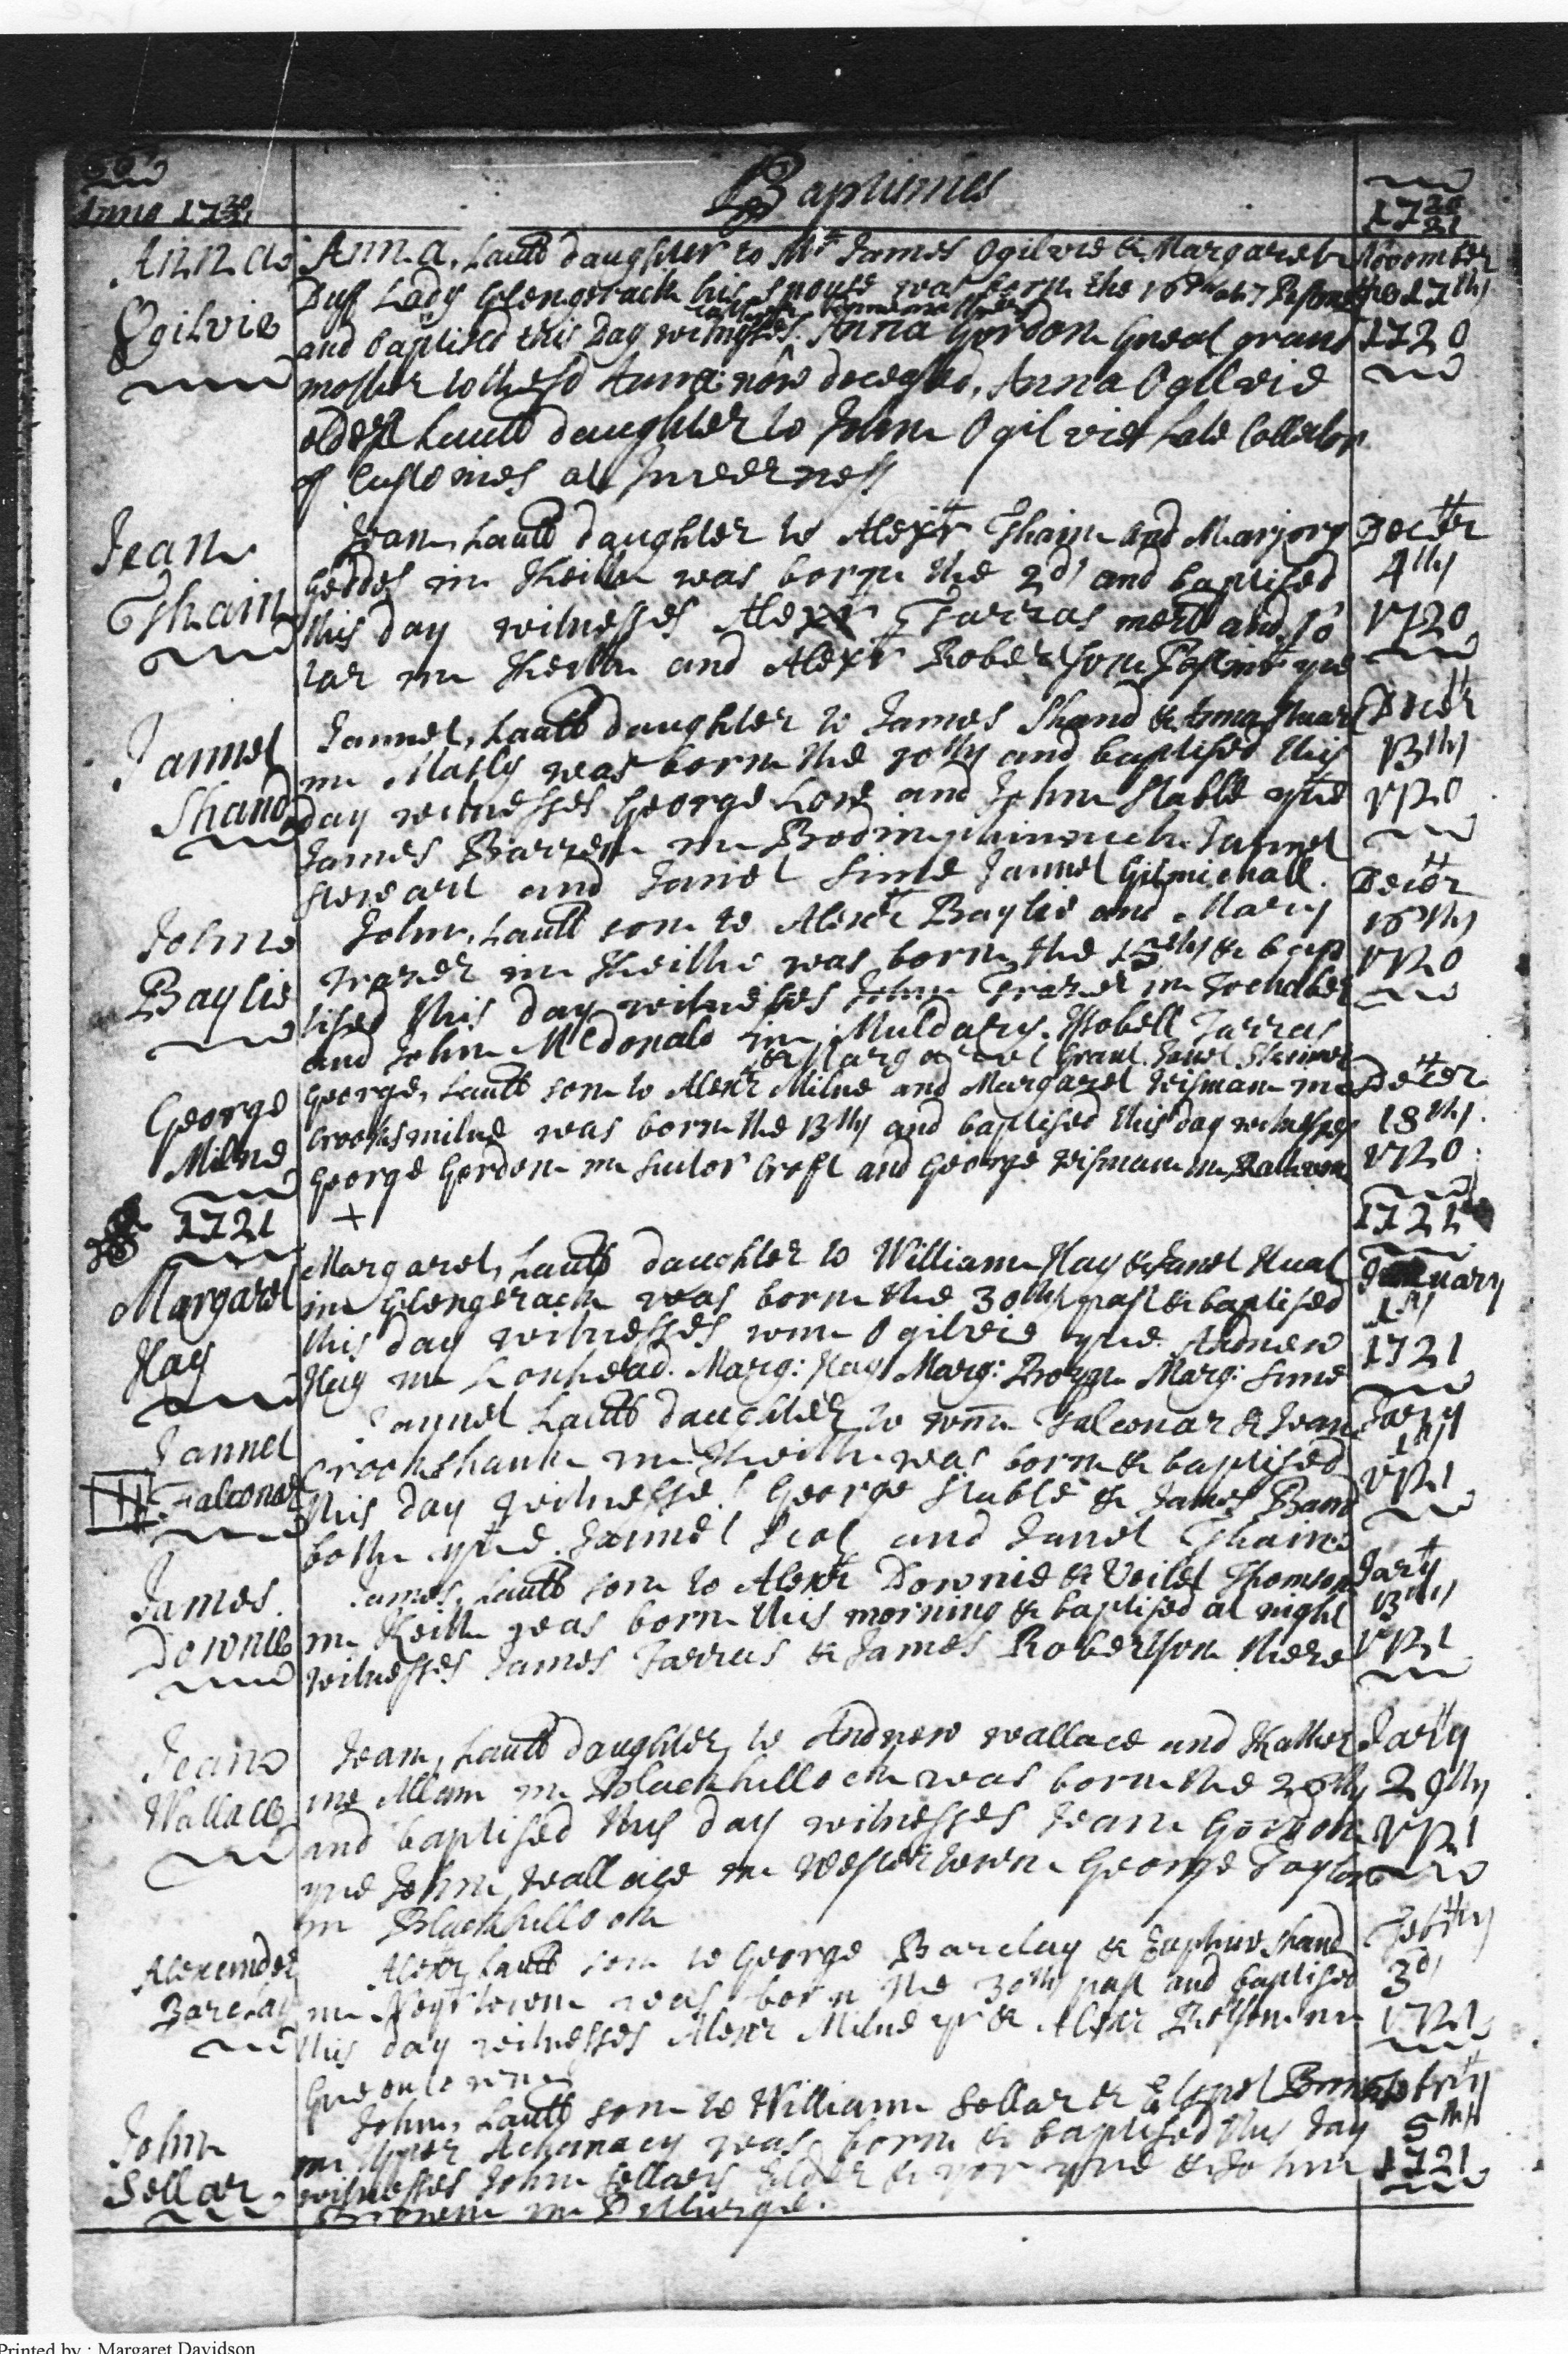 Anno 1720
Baptismes
1720
21
Anna
Ogilvie
Anna, Laull daughter to Mr James Ogilvie & Margaret
Duff Lady Glengerack his spouse was born the 16th at 7
and baptised this Day witnesses Anna Gordon Great grand
mother to the sd Anna now deceased, Anna Ogilvie
eldest Laull daughter to John Ogilvie Late Collector
of Customes at Inverness
November
the 17th
1720
Jean
Thain
Jean, Laull daughter to Alexr Thain and Marjory
Geddes in Keith was born the 2d and baptised
this day witnesses Alexr Tarras mert and
in Keith and Alexr Robertson yre
Decer
4th
1720
Jannet
Shand
Jannet, Laull daughter to James Shand & Anna Stuart
in was born the 10th and baptised this
day witnesses George Love and John Stable yre
James in Jannet
Stewart and Janet Sime Jannet Gilmichall
Decer
13th
1720
John
Baylie
John, Laull son to Alexr Baylie and Mary
Frazer in Keith was born the 15th & bap
tised this day witnesses John Frazer in Fochaber
and John McDonald in Muldary. Isobell Tarras
& Margaret Grant. Janet
Decer
16th
1720
George
Milne
George, Laull son to Alexr Milne and Margaret Wisman in
Crooksmilne was born the 13th and baptised this day witnesses
George Gordon in Sutor Croft and George Wisman in
Decer
18th
1720
1721
1721
Margaret
Hay
Margaret, Laull daughter to William Hay & Janet
in Glengerack was born the 30th past & baptised
this day witnesses wm Ogilvie yre Andrew
Hay in Lonhead. Marg: Hay Marg: Marg: Sime
January
1st
1721
Jannet
Falconar
Jannet Laull daughter to wm Falconar & Jean
Crookshank in Keith was born & baptised
this day witnesses George Stable & James
both yre Jannet and Janet Thain
Jary
1st
1721
James
Downie
James, Laull son to Alexr Downie & Veilet Thomson
in Keith was born this morning & baptised at night
witnesses James Tarras & James Robertson there
Jary
13th
1721
Jean
Wallace
Jean, Laull daughter to Andrew Wallace and Kather
ine Allan in Blackhillock was born the 28th
and baptised this day witnesses Jean Gordon
yre John Wallace in Westertown George Taylor
in Blackhillock
Jary
29th
1721
Alexander
Barclay
Alexr Laull son to George Barclay & Shand
in Newtown was born the 30th past and baptised
this day witnesses Alexr Milne yr & Alexr in
Febry
3d
1721
John
Sellar
John, Laull son to William Sellar & Elspet
in Upper Achanacy was born & baptised this day
witnesses John Sellars Elder & yor yre & John
Brown in
Febry
5th
1721
Printed by : Margaret Davidson